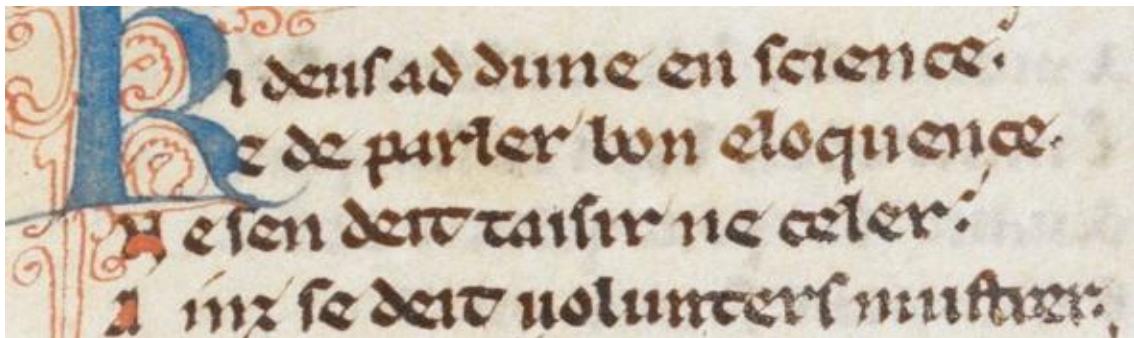 Ki deus ad dune en science.
e de parler bon eloquence.
Ne sen deit taisir ne celer.
Ainz se deit uolunters mustrer.